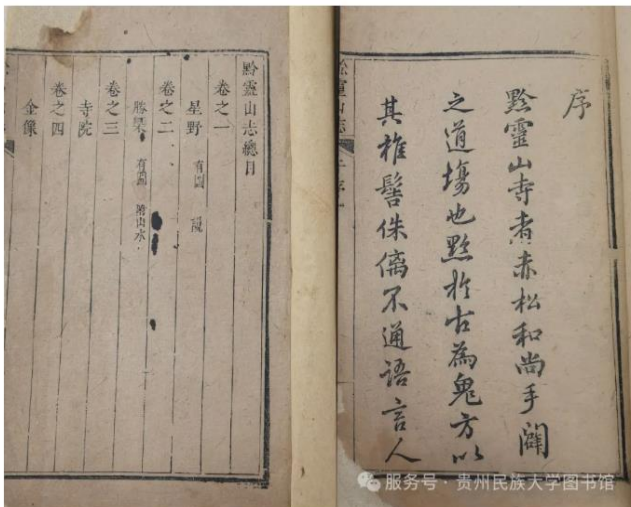 序
黔靈山寺者赤松和尚手闢
之道場也黔於古為鬼方以
其椎髻侏𠌯不通語言人
黔靈山志
黔靈山志總目
卷之一
星野 有圖 說
卷之二
勝槩 有圖 附山水
卷之三
寺院
卷之四
金像
服务号 · 贵州民族大学图书馆